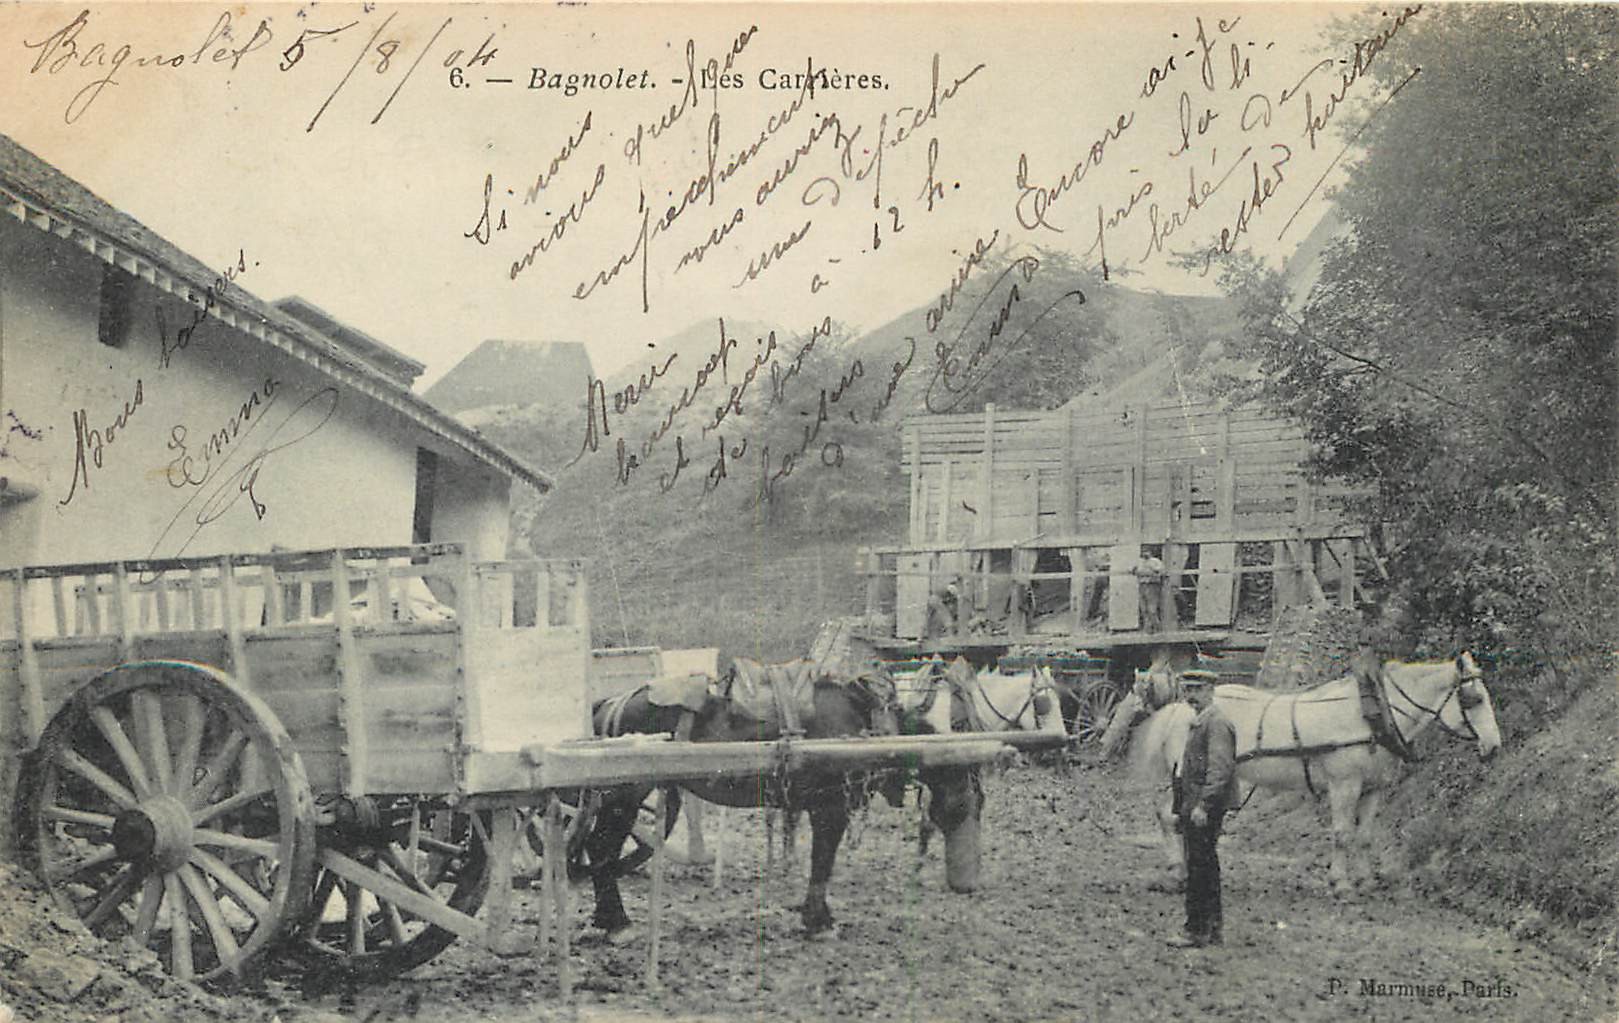 Bagnolet 5/8/04
6. — Bagnolet. - Les Carrières.
Si nous
avions quelques
empêchement
vous auriez
une dépêche
à 12 h.
Merci
beaucoup
et reçois
de bons
baisers
d'une amie
Emma
Encore ai-je
pris la li-
berté de
rester
Bons baisers.
Emma
P. Marmuse, Paris.